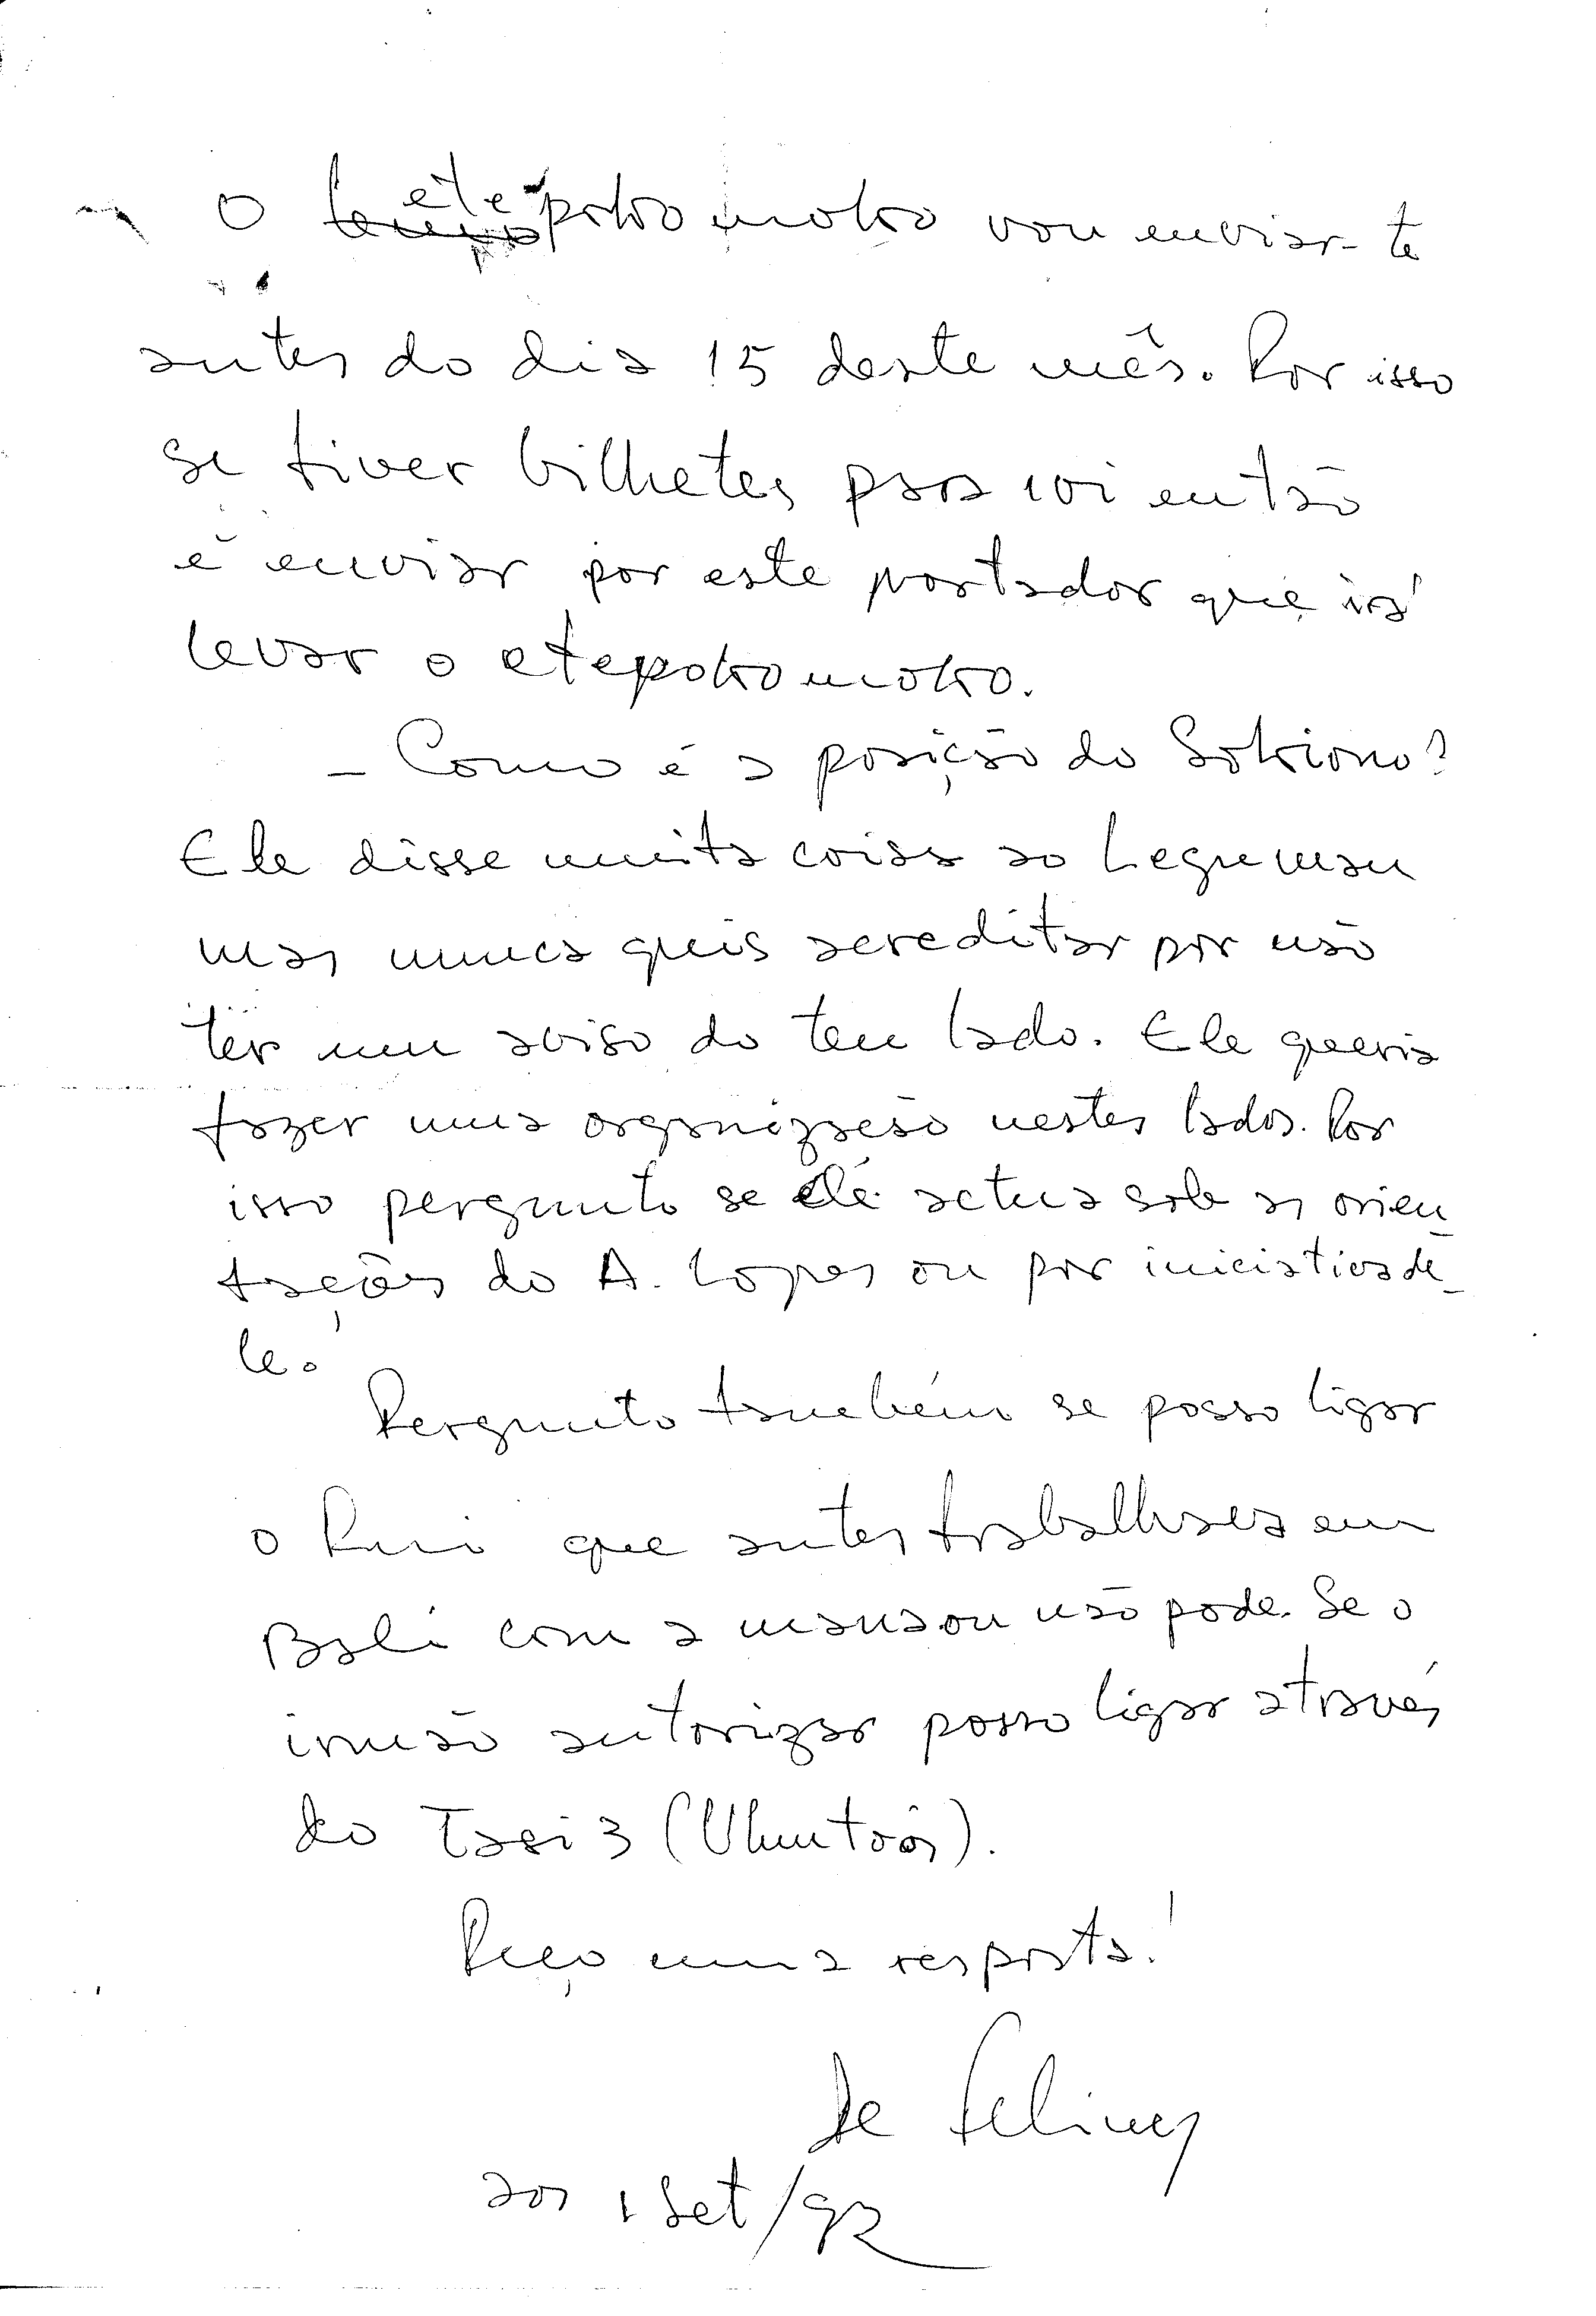 O etepokomoko vou enviar-te
antes do dia 15 deste mês. Por isso
se tiver bilhetes para vir então
é enviar por este portador que irá
levar o etepokomoko.
- Como é a posição do
Ele disse muita coisa ao Leguman
mas nunca quis acreditar por não
ter um aviso do teu lado. Ele queria
fazer uma organização nestes lados. Por
isso pergunto se ele actua sob as orien-
tações do A. Lopes ou por iniciativa de-
le.
Pergunto também se posso ligar
o Rui que antes trabalhava em
Bali com a mana ou não pode. Se o
irmão autorizar posso ligar através
do Taci 3 (
Peço uma resposta!
De
aos 1 Set/92